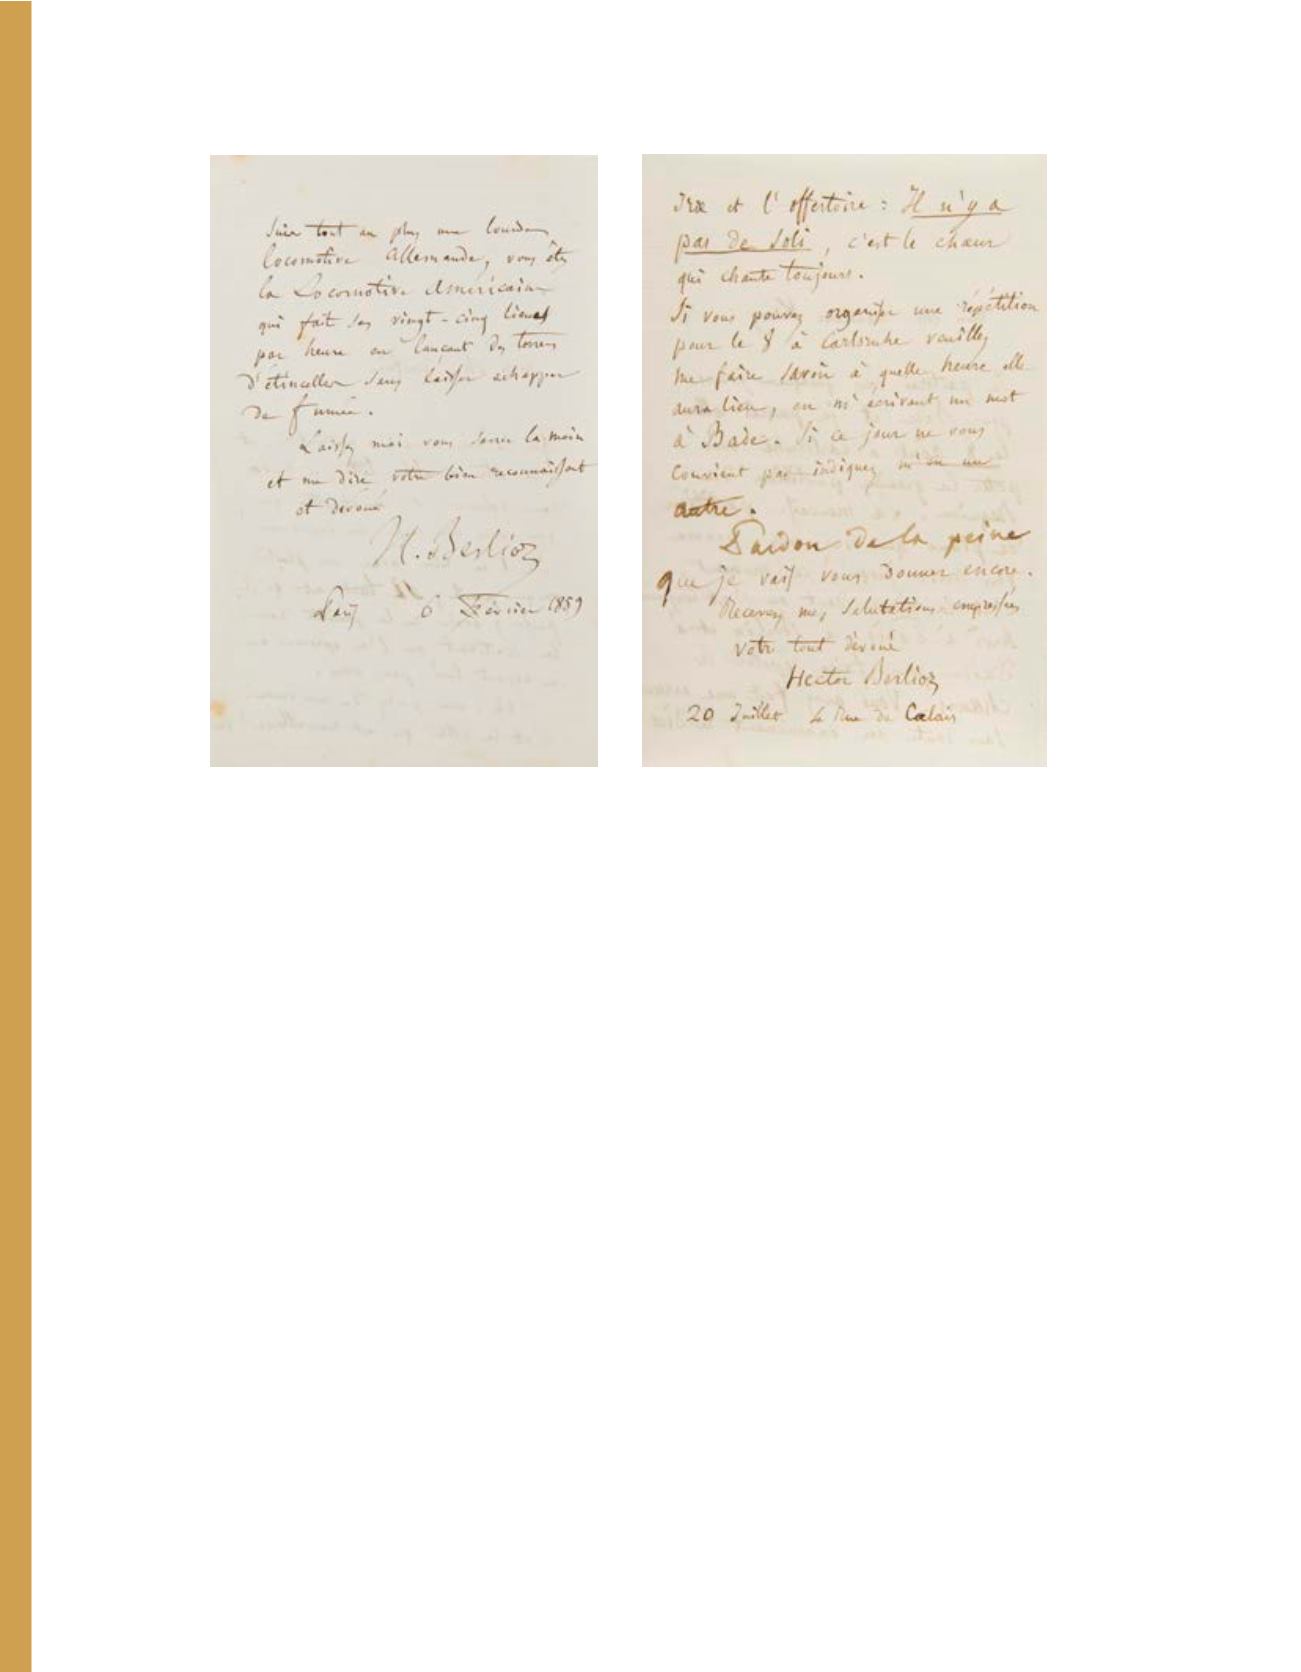 suis tout au plus une lourde
locomotive Allemande, vous êtes
la Locomotive Américaine
qui fait ses vingt-cinq lieues
par heure en lançant des torrens
d'étincelles sans laisser echapper
de fumée.
Laissez moi vous serrer la main
et me dire votre bien reconnaissant
et dévoué
H. Berlioz
Paris 6 Février 1859
Iræ et l'offertoire : Il n'y a
pas de soli, c'est le chœur
qui chante toujours.
Si vous pouvez organiser une répétition
pour le 8 à Carlsruhe veuillez
me faire savoir à quelle heure elle
aura lieu, en m'écrivant un mot
à Bade. Si ce jour ne vous
convient pas indiquez m'en un
autre.
Pardon de la peine
que je vais vous donner encore.
Recevez mes salutations empressées
votre tout dévoué
Hector Berlioz
20 Juillet 4 Rue de Calais